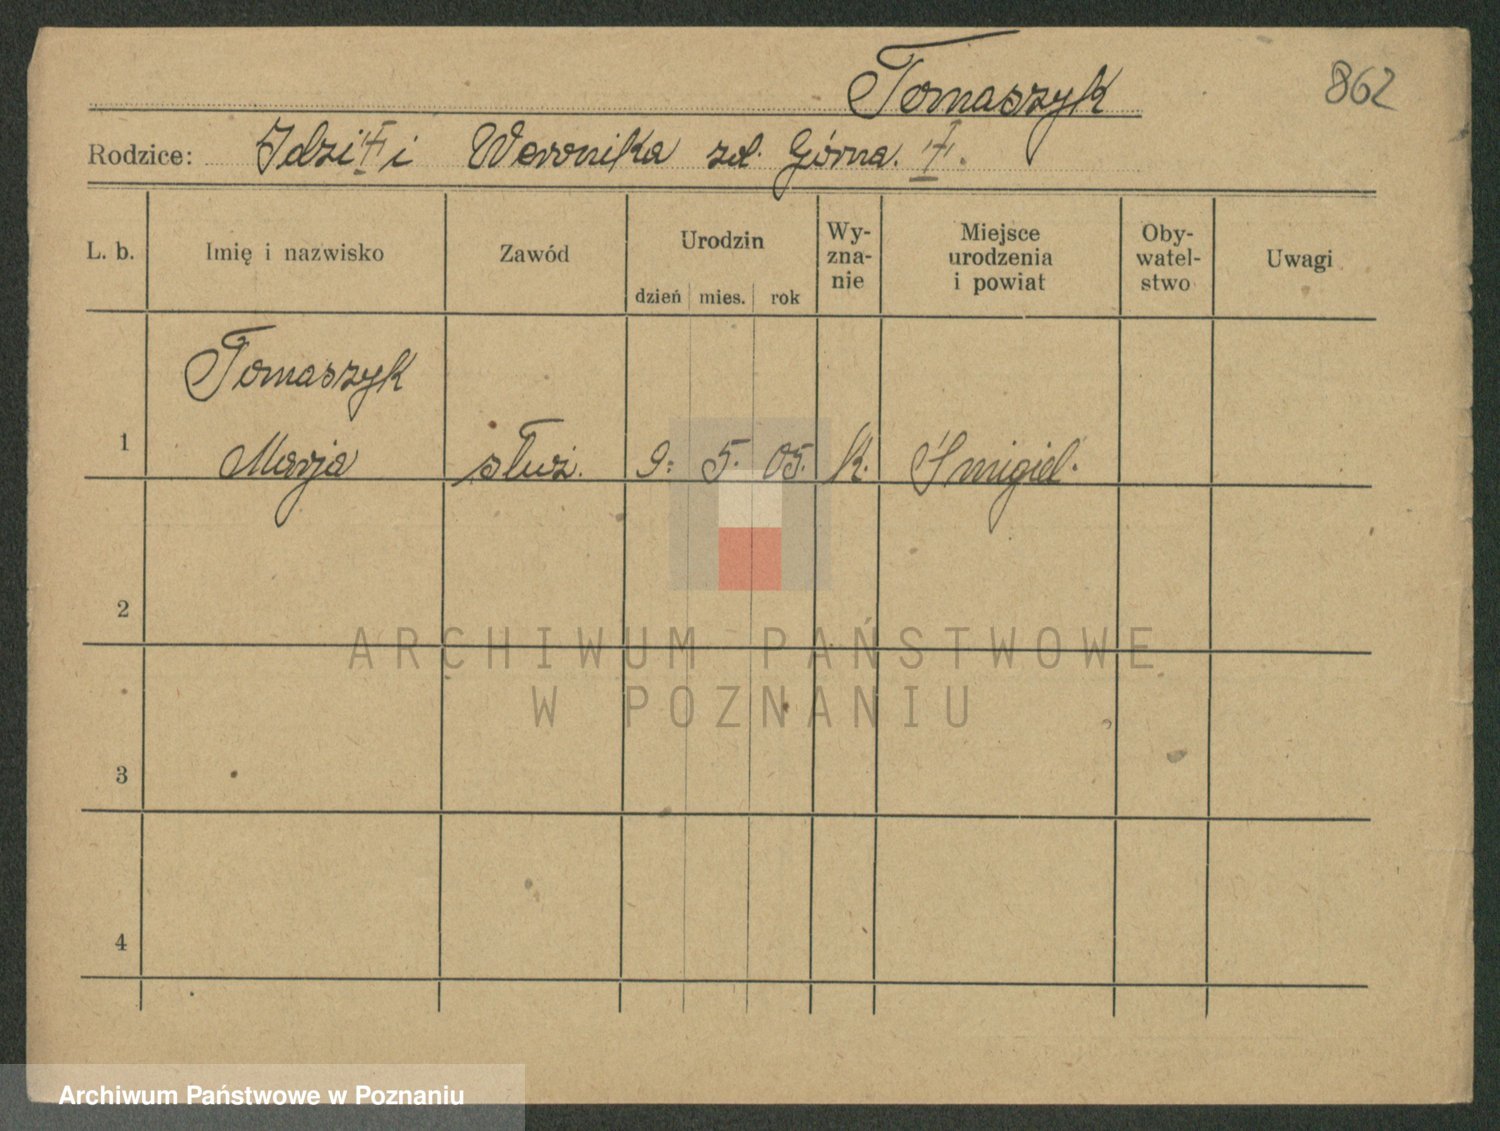 Tomaszyk
862
Rodzice: Idzi † i Weronika zd. Górna. †.
L. b. Imię i nazwisko Zawód Urodzin dzień mies. rok Wy-
zna-
nie Miejsce
urodzenia
i powiat Oby-
watel-
stwo Uwagi
Tomaszyk
1 Marja służ. 9. 5. 05. K. Śmigiel.
2
3
4
ARCHIWUM PAŃSTWOWE
W POZNANIU
Archiwum Państwowe w Poznaniu